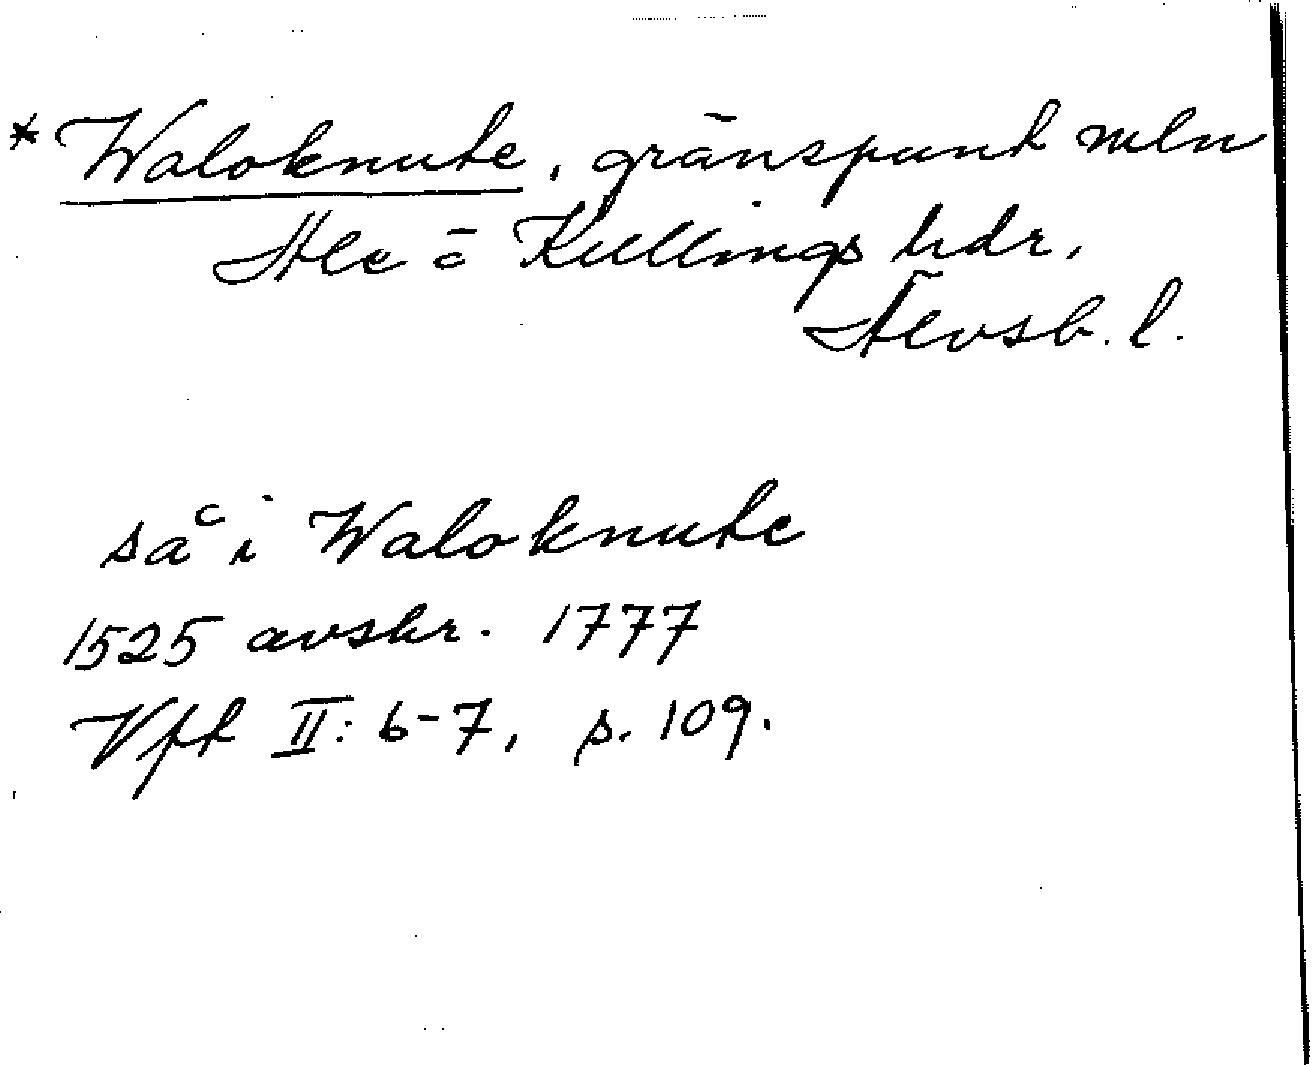 * Waloknute, gränspunkt mln
Ale o Kullings hdr,
Älvsb. l.
så i Waloknute
1525 avskr. 1777
Vft II: 6-7, s. 109.